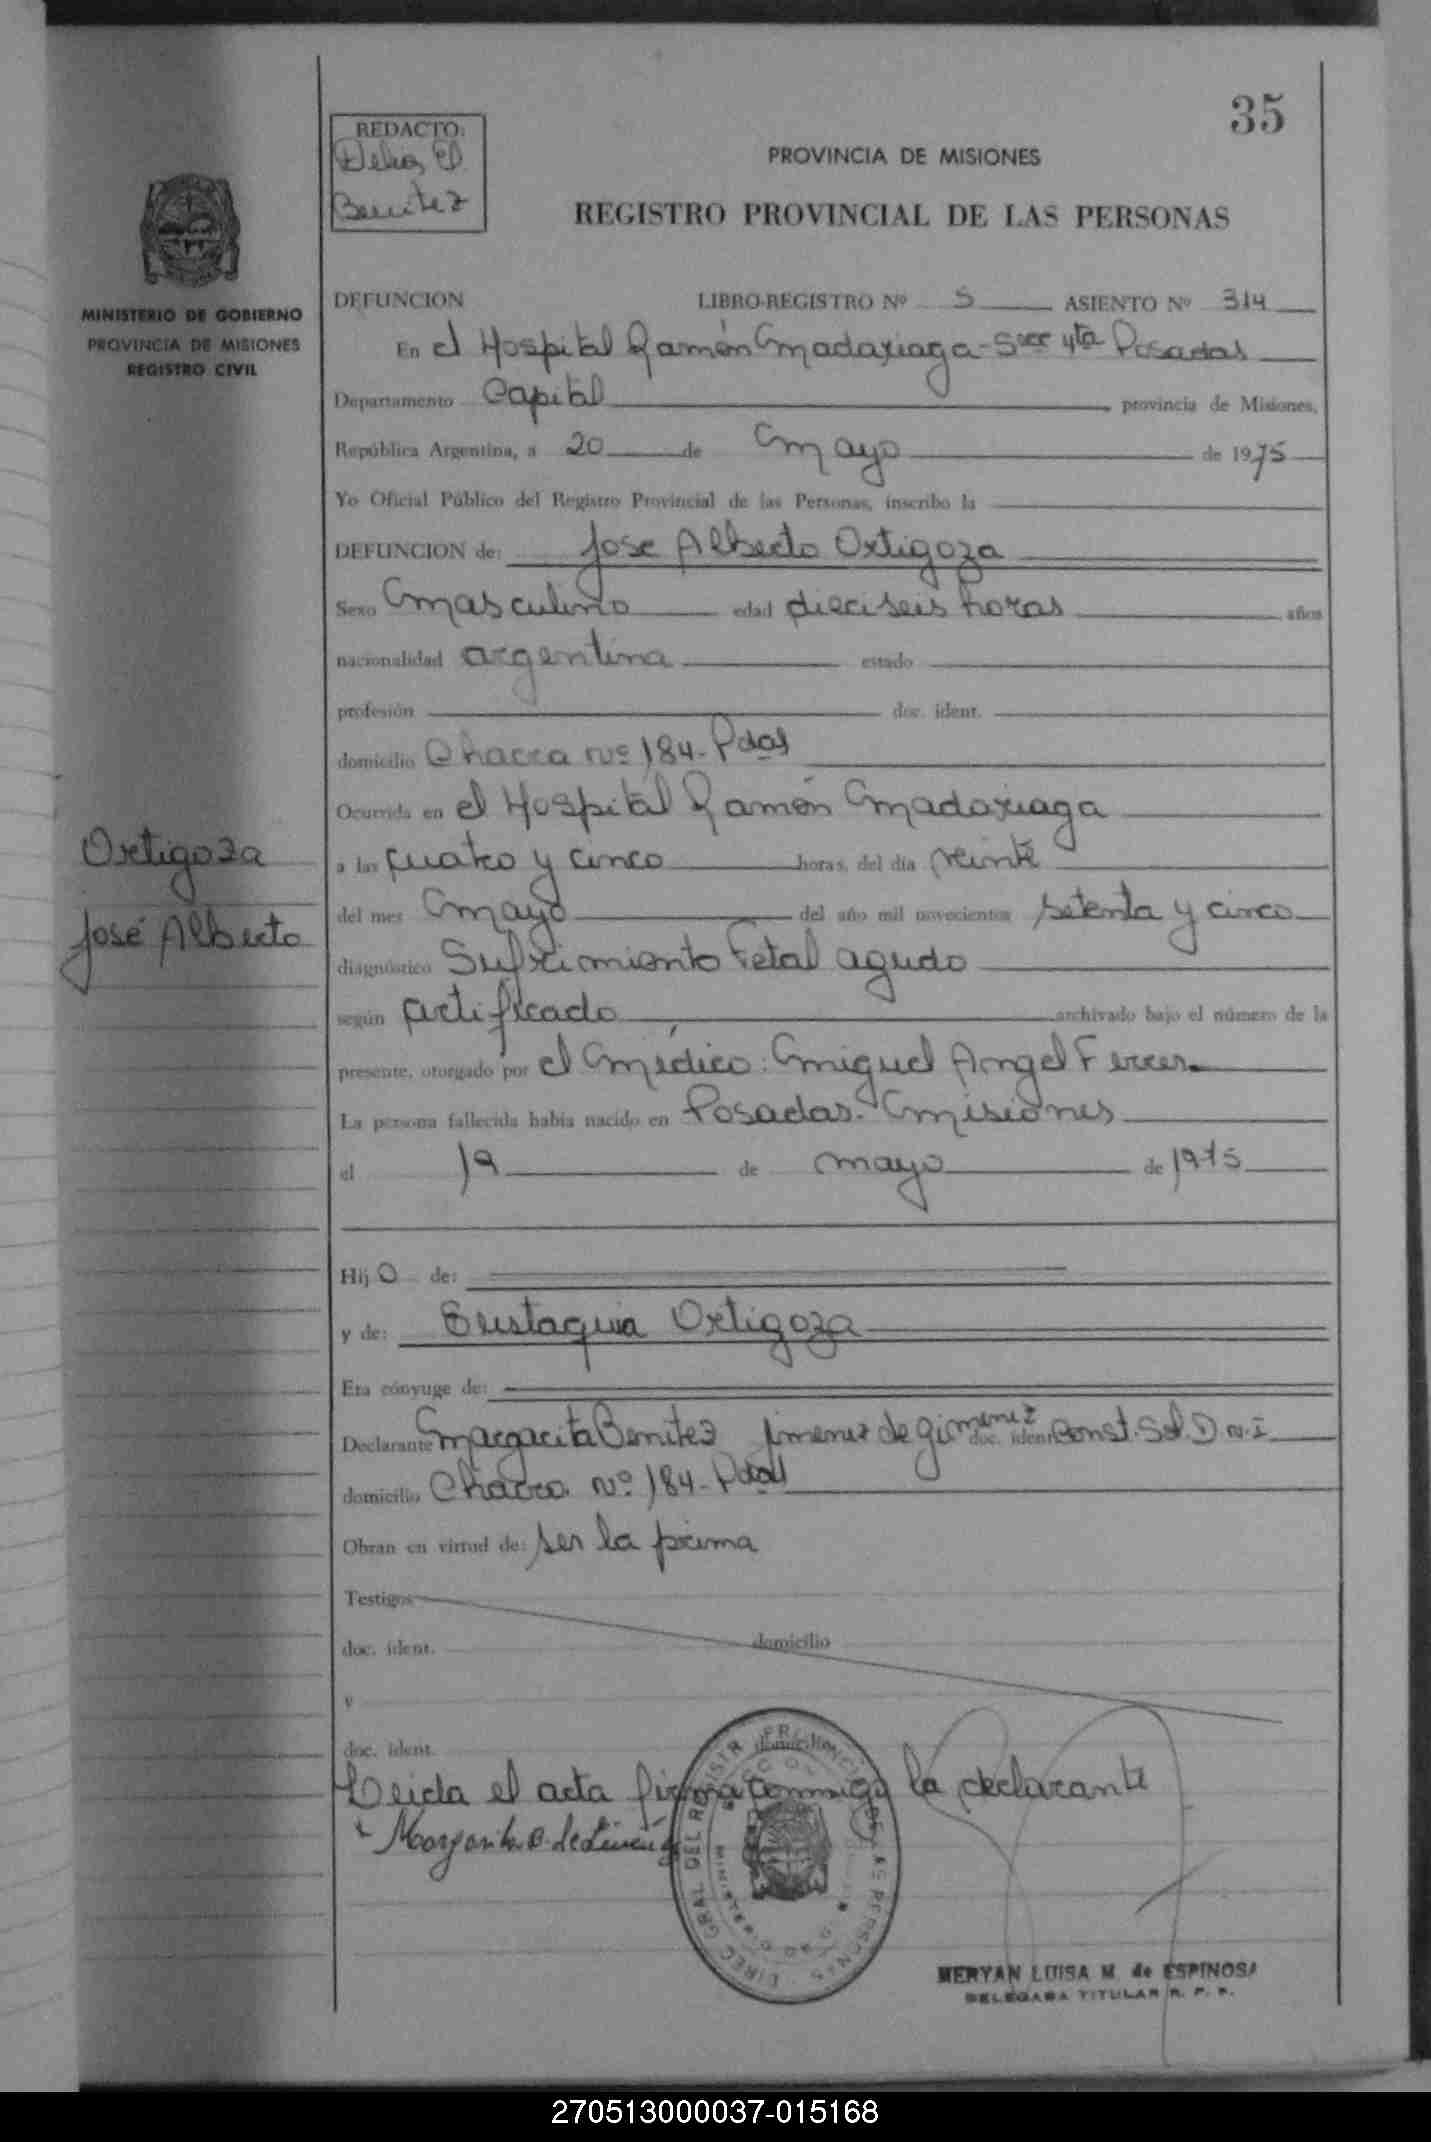 35
REDACTO:
Delia E.
Benitez
PROVINCIA DE MISIONES
REGISTRO PROVINCIAL DE LAS PERSONAS
MINISTERIO DE GOBIERNO
PROVINCIA DE MISIONES
REGISTRO CIVIL
DEFUNCION LIBRO-REGISTRO Nº 5 ASIENTO Nº 314
En el Hospital Ramón Madariaga - Secc 4ta Posadas
Departamento Capital provincia de Misiones,
República Argentina, a 20 de Mayo de 1975
Yo Oficial Público del Registro Provincial de las Personas, inscribo la
DEFUNCION de: Jose Alberto Ortigoza
Sexo Masculino edad dieciseis horas años
nacionalidad argentina estado
profesión doc. ident.
domicilio Chacra Nº 184 - Pdas
Ocurrida en el Hospital Ramón Madariaga
a las cuatro y cinco horas, del día veinte
del mes Mayo del año mil novecientos setenta y cinco
diagnóstico Sufrimiento Fetal agudo
según certificado archivado bajo el número de la
presente, otorgado por el Médico: Miguel Angel Ferrer
La persona fallecida había nacido en Posadas. Misiones
el 19 de mayo de 1975
Ortigoza
José Alberto
Hijo de:
y de: Eustaquia Ortigoza
Era cónyuge de:
Declarante Margarita Benitez Jimenez de Gimenez doc. ident. Const. Sol. D.N.I
domicilio Chacra Nº 184 - Pdas
Obran en virtud de: ser la prima
Testigos
doc. ident. domicilio
y
doc. ident. domicilio
Leida el acta firma conmigo la declarante
Margarita B. de Jimenez
MERYAN LUISA M. de ESPINOSA
DELEGADA TITULAR R. P. P.
270513000037-015168